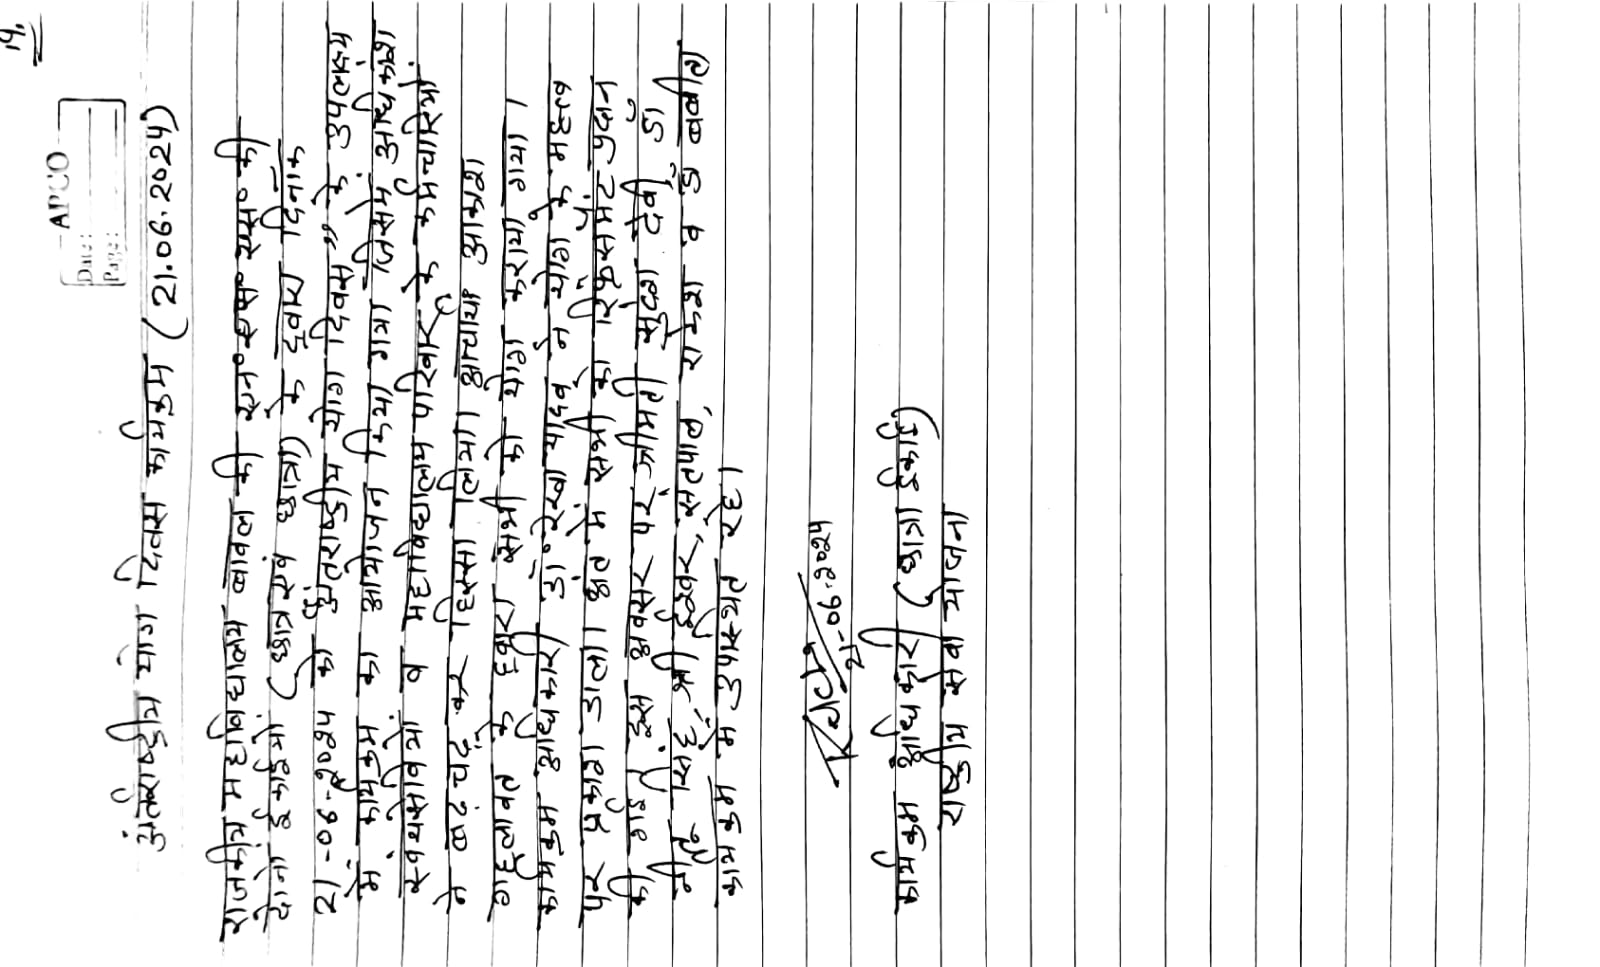 19.
APCO
Date:
Page:
अंतर्राष्ट्रीय योग दिवस कार्यक्रम (21.06.2024)
राजकीय महाविद्यालय बावल की एन० एस० एस० की
दोनो ईकाईयो (छात्र एवं छात्रा) के द्वारा दिनांक
21-06-2024 को अंतराष्ट्रीय योग दिवस" के उपलक्ष्य
में कार्यक्रम का आयोजन किया गया। जिसमे अधिकांश
स्वयंसेवियो व महाविद्यालय परिवार के कर्मचारियो
ने बढ चढ कर हिस्सा लिया। आचार्या आकाश
गहलावत के द्वारा सभी को योग कराया गया।
कार्यक्रम अधिकारी डॉ० रेखा यादव ने योग के महत्व
पर प्रकाश डाला। अंत मे सभी को रिफ्रेसमेंट प्रदान
की गई। इस अवसर पर श्रीमती सुदेश देवी, डा
सिंह, श्री ईश्वर, सतपाल, राकेश व डॉ नवीन
कार्यक्रम मे उपस्थित रहे।
21-06-2024
कार्यक्रम अधिकारी (छात्रा ईकाई)
राष्ट्रीय सेवा योजना